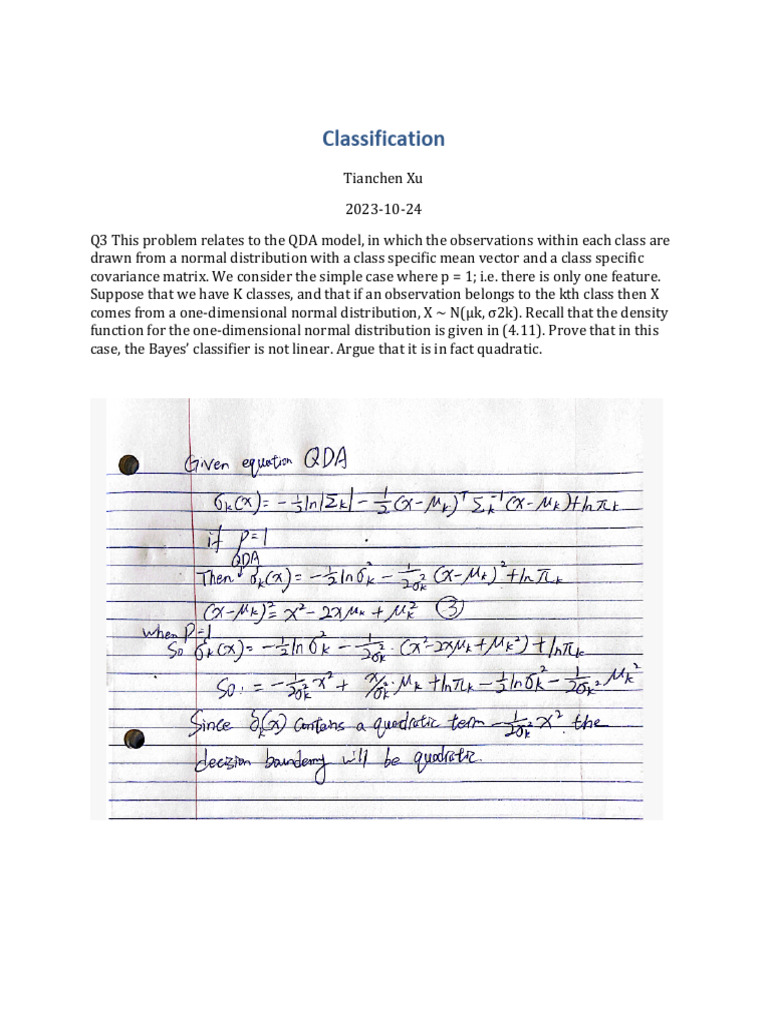 Classification
Tianchen Xu
2023-10-24
Q3 This problem relates to the QDA model, in which the observations within each class are
drawn from a normal distribution with a class specific mean vector and a class specific
covariance matrix. We consider the simple case where p = 1; i.e. there is only one feature.
Suppose that we have K classes, and that if an observation belongs to the kth class then X
comes from a one-dimensional normal distribution, X ~ N(μk, σ2k). Recall that the density
function for the one-dimensional normal distribution is given in (4.11). Prove that in this
case, the Bayes’ classifier is not linear. Argue that it is in fact quadratic.
Given equation QDA
δk(x) = -½ ln|Σk| - ½ (x-μk)ᵀ Σk⁻¹ (x-μk) + ln πk
if p=1
QDA
Then δk(x) = -½ ln σk² - 1/2σk² (x-μk)² + ln πk
(x-μk)² = x² - 2xμk + μk² ③
when p=1
So δk(x) = -½ ln σk² - 1/2σk² · (x²-2xμk+μk²) + ln πk
So: = -1/2σk² x² + x/σk² · μk + ln πk - ½ ln σk² - 1/2σk² μk²
Since δk(x) contains a quadratic term -1/2σk² x². the
decision boundemy will be quadratic.